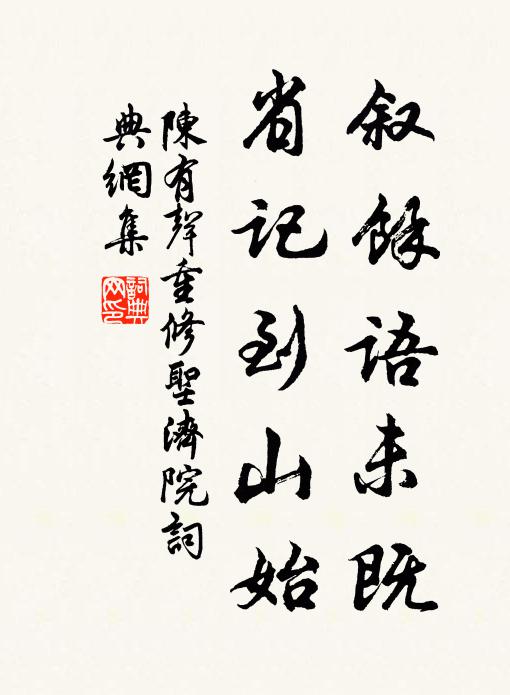 叙餘語未既
省記到山始
陳有聲重修聖濟院詞
典網集
詞典网印